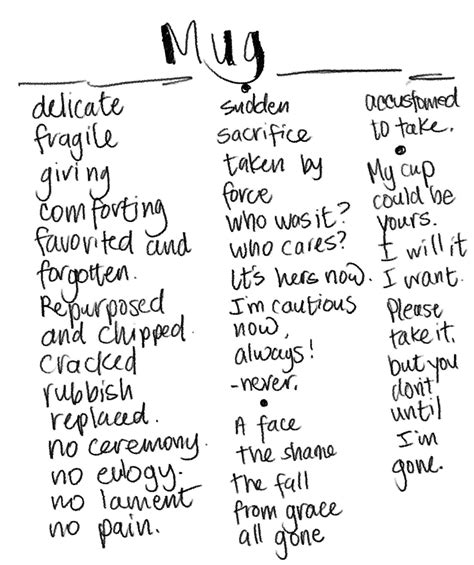 Mug
delicate
fragile
giving
comforting
favorited and
forgotten.
Repurposed
and chipped.
cracked
rubbish
replaced.
no ceremony.
no eulogy.
no lament
no pain.
sudden
sacrifice
taken by
force
who was it?
who cares?
It's hers now.
I'm cautious
now,
always!
-never.
A face
the shame
the fall
from grace
all gone
accustomed
to take.
My cup
could be
yours.
I will it
I want.
Please
take it.
but you
don't
until
I'm
gone.